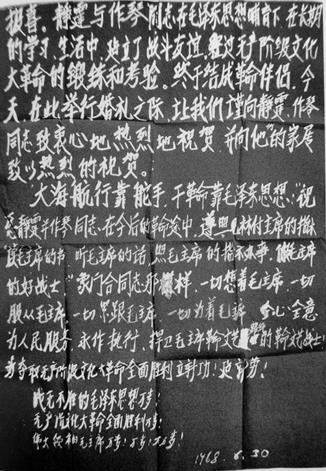 静霆与作琴同志,在毛泽东思想哺育下,在长期
的学习、生活中,建立了战斗友谊,经过无产阶级文化
大革命的锻练和考验。终于结成革命伴侣,今
天在此举行婚礼之际,让我们谨向静霆、作琴
同志致衷心地热烈地祝贺,并向他们的家属
致以热烈的礼贺。
大海航行靠舵手,干革命靠毛泽东思想。祝
静霆、作琴同志,在今后的革命中,遵照林付主席的指示
读毛主席的书 听毛主席的话 照毛主席的指示办事,做毛主席
的好战士 象门合同志那样,一切想着毛主席,一切
服从毛主席,一切紧跟毛主席 一切为着毛主席 全心全意
为人民服务
为夺取无产阶级文化大革命全面胜利立新功!
战无不胜的毛泽东思想万岁!
无产阶级文化大革命全面胜利万岁!
伟大领袖毛主席万岁!万岁!万万岁!
1968.6.30